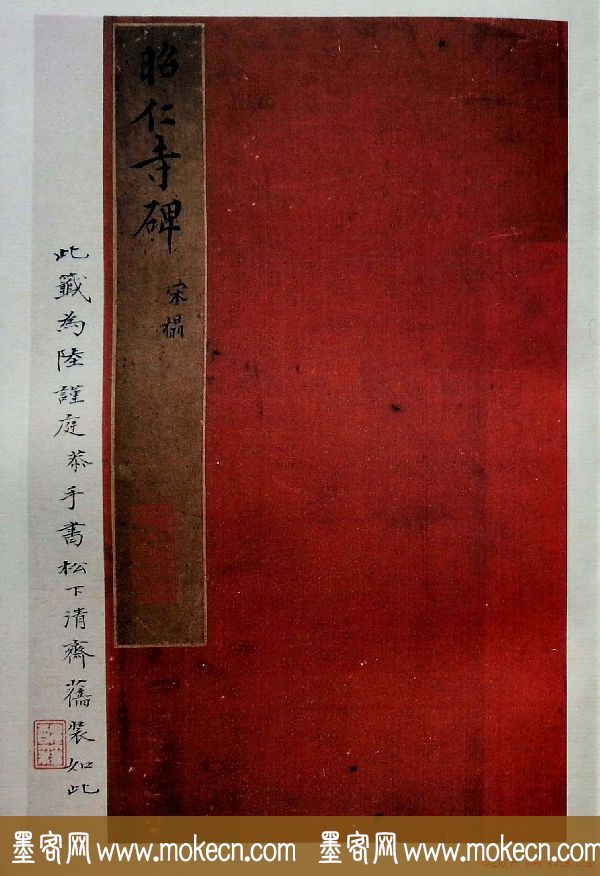 昭仁寺碑
宋搨
此籤為陸謹庭恭手書松下清齋舊裝如此
墨客网 www.mokecn.com 墨客网 www.mokecn.com